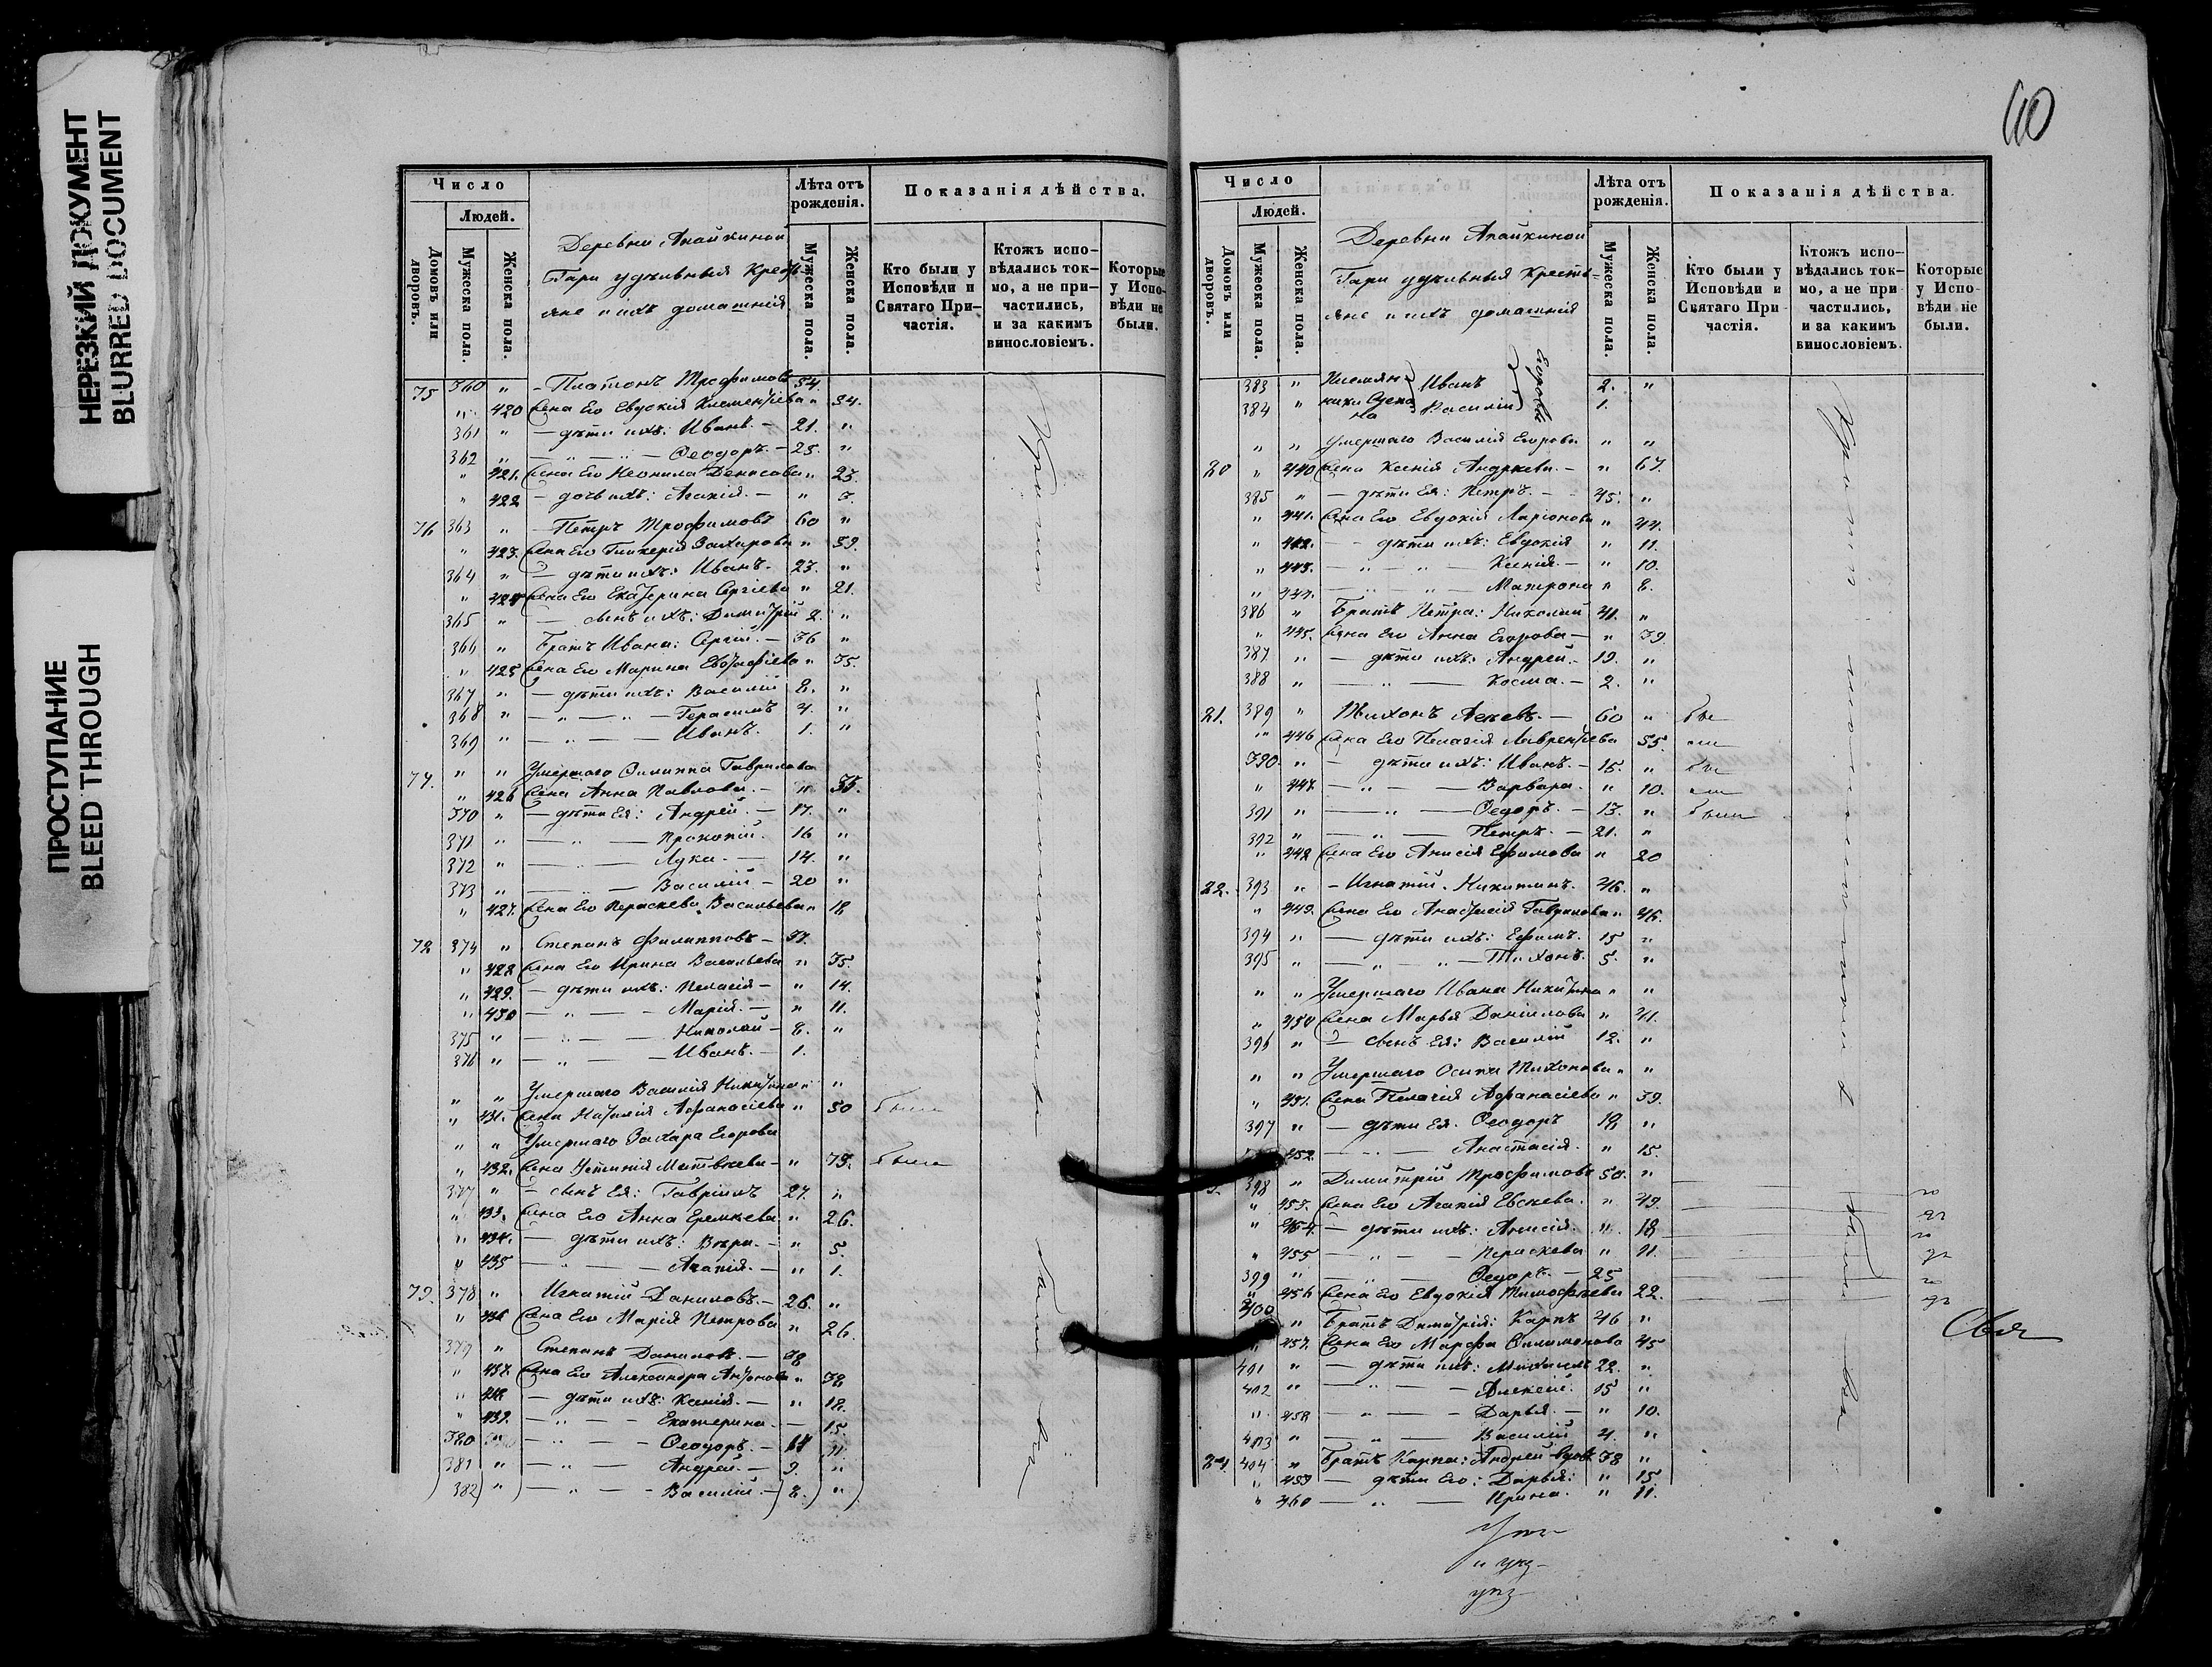 НЕРЕЗКИЙ ДОКУМЕНТ
BLURRED DOCUMENT
ПРОСТУПАНИЕ
BLEED THROUGH
Число
Людей.
Домовъ или дворовъ.
Мужеска пола.
Женска пола.
Деревни Апайкиной
Гари удѣльныя Кресть-
яне и ихъ домашнія
Лѣта отъ рожденія.
Мужеска пола.
Женска пола.
Показанія дѣйства.
Кто были у Исповѣди и Святаго Причастія.
Ктожъ исповѣдались токмо, а не причастились, и за какимъ винословіемъ.
Которые у Исповѣди не были.
75 360 " - Платонъ Трофимовъ 54.
" 420 Жена Его Евдокія Климентіева " 54.
361 " — дѣти ихъ: Иванъ. — 21. "
362 " — " — " — Ѳеодоръ. — 25. "
" 421. Жена Его Неонила Денисова " 23.
" 422 — дочь ихъ: Агапія. — " 3.
76 363 " — Петръ Трофимовъ 60 "
" 423. Жена Его Гликерія Захарова " 59.
364 " — дѣти ихъ: Иванъ. — 23. "
" 424 Жена Его Екатерина Сергіева " 21.
365 " — сынъ ихъ: Димитрій 2. "
366 " Братъ Ивана: Сергій. — 36 "
" 425 Жена Его Марина Евстафіева " 35.
367 " — дѣти ихъ: Василій 8. "
368 " — " — " — Герасимъ 4. "
369 " — " — — Иванъ. 1. "
77. " " Умершаго Филиппа Гаврилова
" 426 Жена Анна Павлова. — "
370 " — дѣти Ея: Андрей. — 17. "
371 " — " — Прокопій. 16 "
372 " — " — Лука. — 14. "
373 " — " — Василій — 20 "
" 427. Жена Его Параскева Васильева " 18
78 374 " Степанъ Филипповъ — 37.
" 428 Жена Его Ирина Васильева " 35.
" 429. — дѣти ихъ: Пелагія — " 14.
" 430 — " — — Марія. — " 11.
375 " — " — — Николай — 8. "
376 " — " — Иванъ. — 1.
" " Умершаго Василія Никитина " "
" 431. Жена Наталія Афанасіева " 50 была
" " Умершаго Захара Егорова
" 432. Жена Устинія Матвѣева — " 75. была
377 " — сынъ Ея: Гавріилъ 27. "
" 433. Жена Его Анна Еремѣева. " 26.
" 434. — дѣти ихъ: Вѣра. — " 5.
" 435 — " — — Агапія. — " 1.
79. 378 " Игнатій Даниловъ. — 26. "
" 436 Жена Его Марія Петрова " 26.
379 " Степанъ Даниловъ. — 38
" 437. Жена Его Александра Антонова " 38
" 438 — дѣти ихъ: Ксенія. — " 18.
" 439. — " — — Екатерина. — 15.
380 " — " — — Ѳеодоръ. — 11.
381 " — " — — Андрей. — 9. "
382 " — " — — Василій. — 8. "
60
Число
Людей.
Домовъ или дворовъ.
Мужеска пола.
Женска пола.
Деревни Апайкиной
Гари удѣльныя Кресть-
яне и ихъ домашнія
Лѣта отъ рожденія.
Мужеска пола.
Женска пола.
Показанія дѣйства.
Кто были у Исповѣди и Святаго Причастія.
Ктожъ исповѣдались токмо, а не причастились, и за какимъ винословіемъ.
Которые у Исповѣди не были.
383 " Иванъ Егоровы 2. "
384 " Василій 1.
" " Умершаго Василія Егорова " "
80 " 440 Жена Ксенія Андреева. — " 67.
385 " — дѣти Ея: Петръ. — 45. "
" 441. Жена Его Евдокія Ларіонова " 44.
" 442. — дѣти ихъ: Евдокія " 11.
" 443. — " — " — Ксенія. — " 10.
" 444. — " — Матрона " 8.
386 " Братъ Петра: Николай 41. "
" 445. Жена Его Анна Егорова — " 39.
387 " — дѣти ихъ: Андрей. — 19. "
388 " — " — — Косма. — 2. "
81. 389 " Тихонъ — 60 " бы
" 446 Жена Его Пелагія Лаврентіева 55. ли
390 " — дѣти ихъ: Иванъ. — 15. " бы
" 447. — " — — Варвара. — " 10. ли
391 " — " — Ѳеодоръ. — 13. " были
392 " — " — Петръ. — 21. "
" 448 Жена Его Анисія Ефимова " 20
82. 393 " — Игнатій Никитинъ. 46. "
" 449. Жена Его Анастасія Гаврилова " 46.
394 " — дѣти ихъ: Ефимъ. 15 "
395 " — " " — Тихонъ. 5. "
" " Умершаго Ивана Никитина " "
" 450 Жена Марья Данилова " 41.
396 " — сынъ Ея: Василій 12. "
" " Умершаго Осипа Тихонова " "
" 451. Жена Пелагія Афанасіева " 39.
397 " — дѣти Ея. Ѳеодоръ 18 "
452. — " — Анастасія " 15.
398 " Димитрій Трофимовъ 50. "
" 453. Жена Его Агапія Евсѣева. " 49.
" 454. — дѣти ихъ: Анисія. " 18
" 455 — " — — Параскева " 11.
399 " — " — Ѳеодоръ. — 25
" 456 Жена Его Евдокія Тимофѣева 22.
400 " Братъ Димитрія: Карпъ 46 "
" 457. Жена Его Марѳа Филимонова 45
401 " — дѣти ихъ: Михаилъ 22. "
402 " — " — — Алексій. 15 "
" 458 — " — — Дарья. — " 10.
403 " — " — Василій 4. "
84. 404 " Братъ Карпа: Андрей вдовъ 38 "
" 459 — дѣти Его: Дарья: " 15.
" 460 — " — Ирина. " 11.